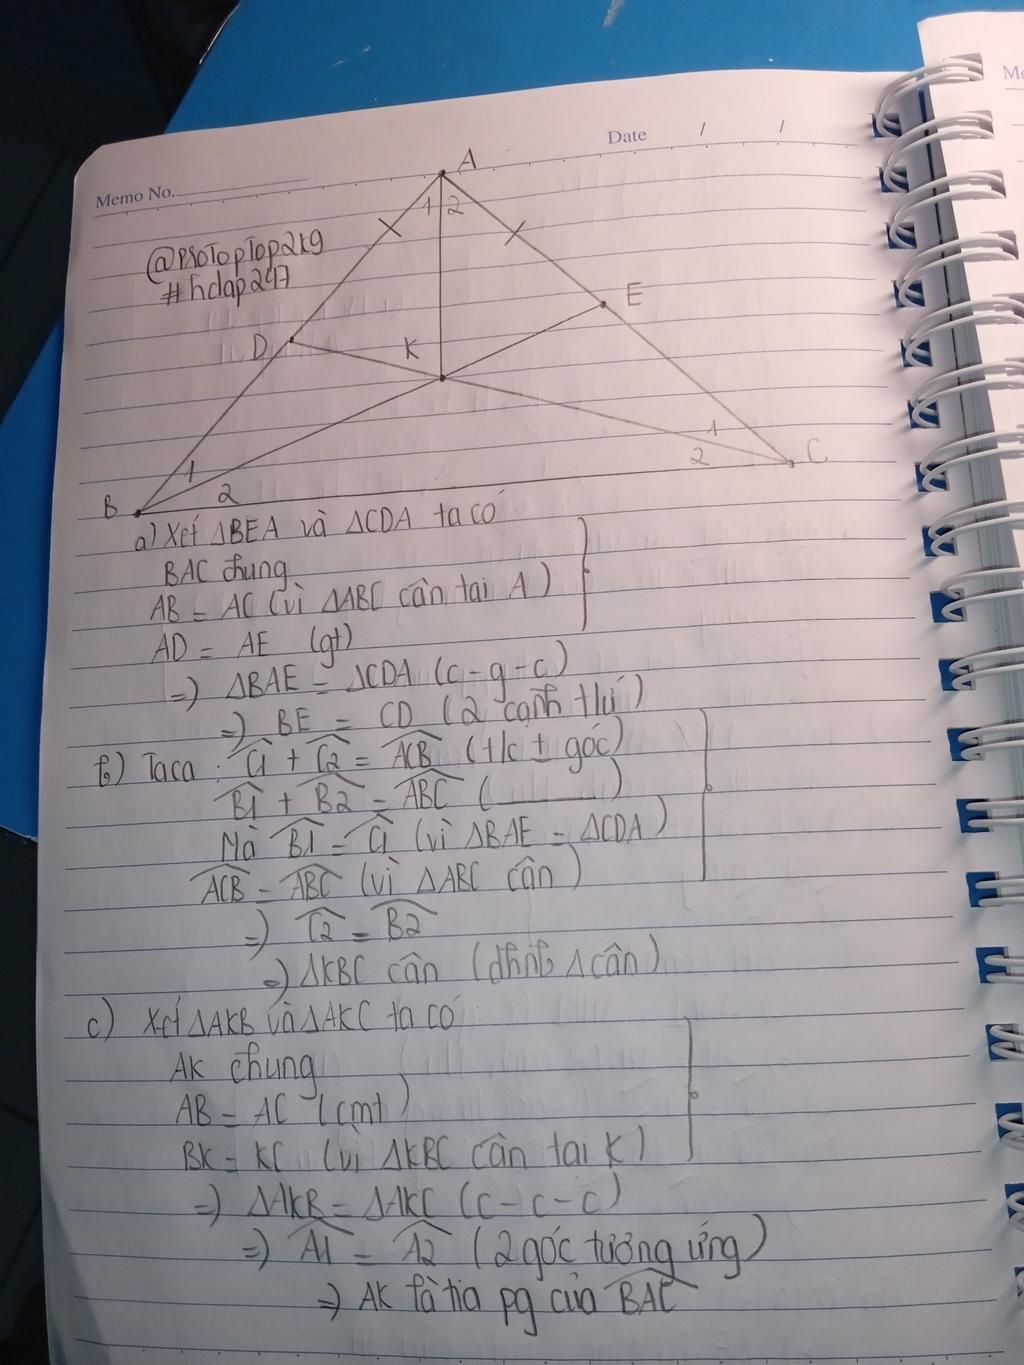 Date / /
Memo No.
A
1 2
@ProTopTop2k9
#hdap247
E
D
K
1
2
C
1
2
B
a) Xét ΔBEA và ΔCDA ta có
BAC chung
AB = AC (vì ΔABC cân tại A)
AD = AE (gt)
=) ΔBAE = ΔCDA (c-g-c)
=) BE = CD (2 cạnh tứ)
b) Taca: Ĉ1 + Ĉ2 = ACB (t/c ± góc)
B̂1 + B̂2 = ABC ( )
Mà B̂1 = Ĉ1 (vì ΔBAE = ΔCDA)
ACB = ABC (vì ΔABC cân)
=) Ĉ2 = B̂2
=) ΔKBC cân (dhnb Δ cân)
c) Xét ΔAKB và ΔAKC ta có
AK chung
AB = AC (cmt)
BK = KC (vì ΔKBC cân tại K)
=) ΔAKB = ΔAKC (c-c-c)
=) Â1 = Â2 (2 góc tương ứng)
=) AK là tia pg của BAC